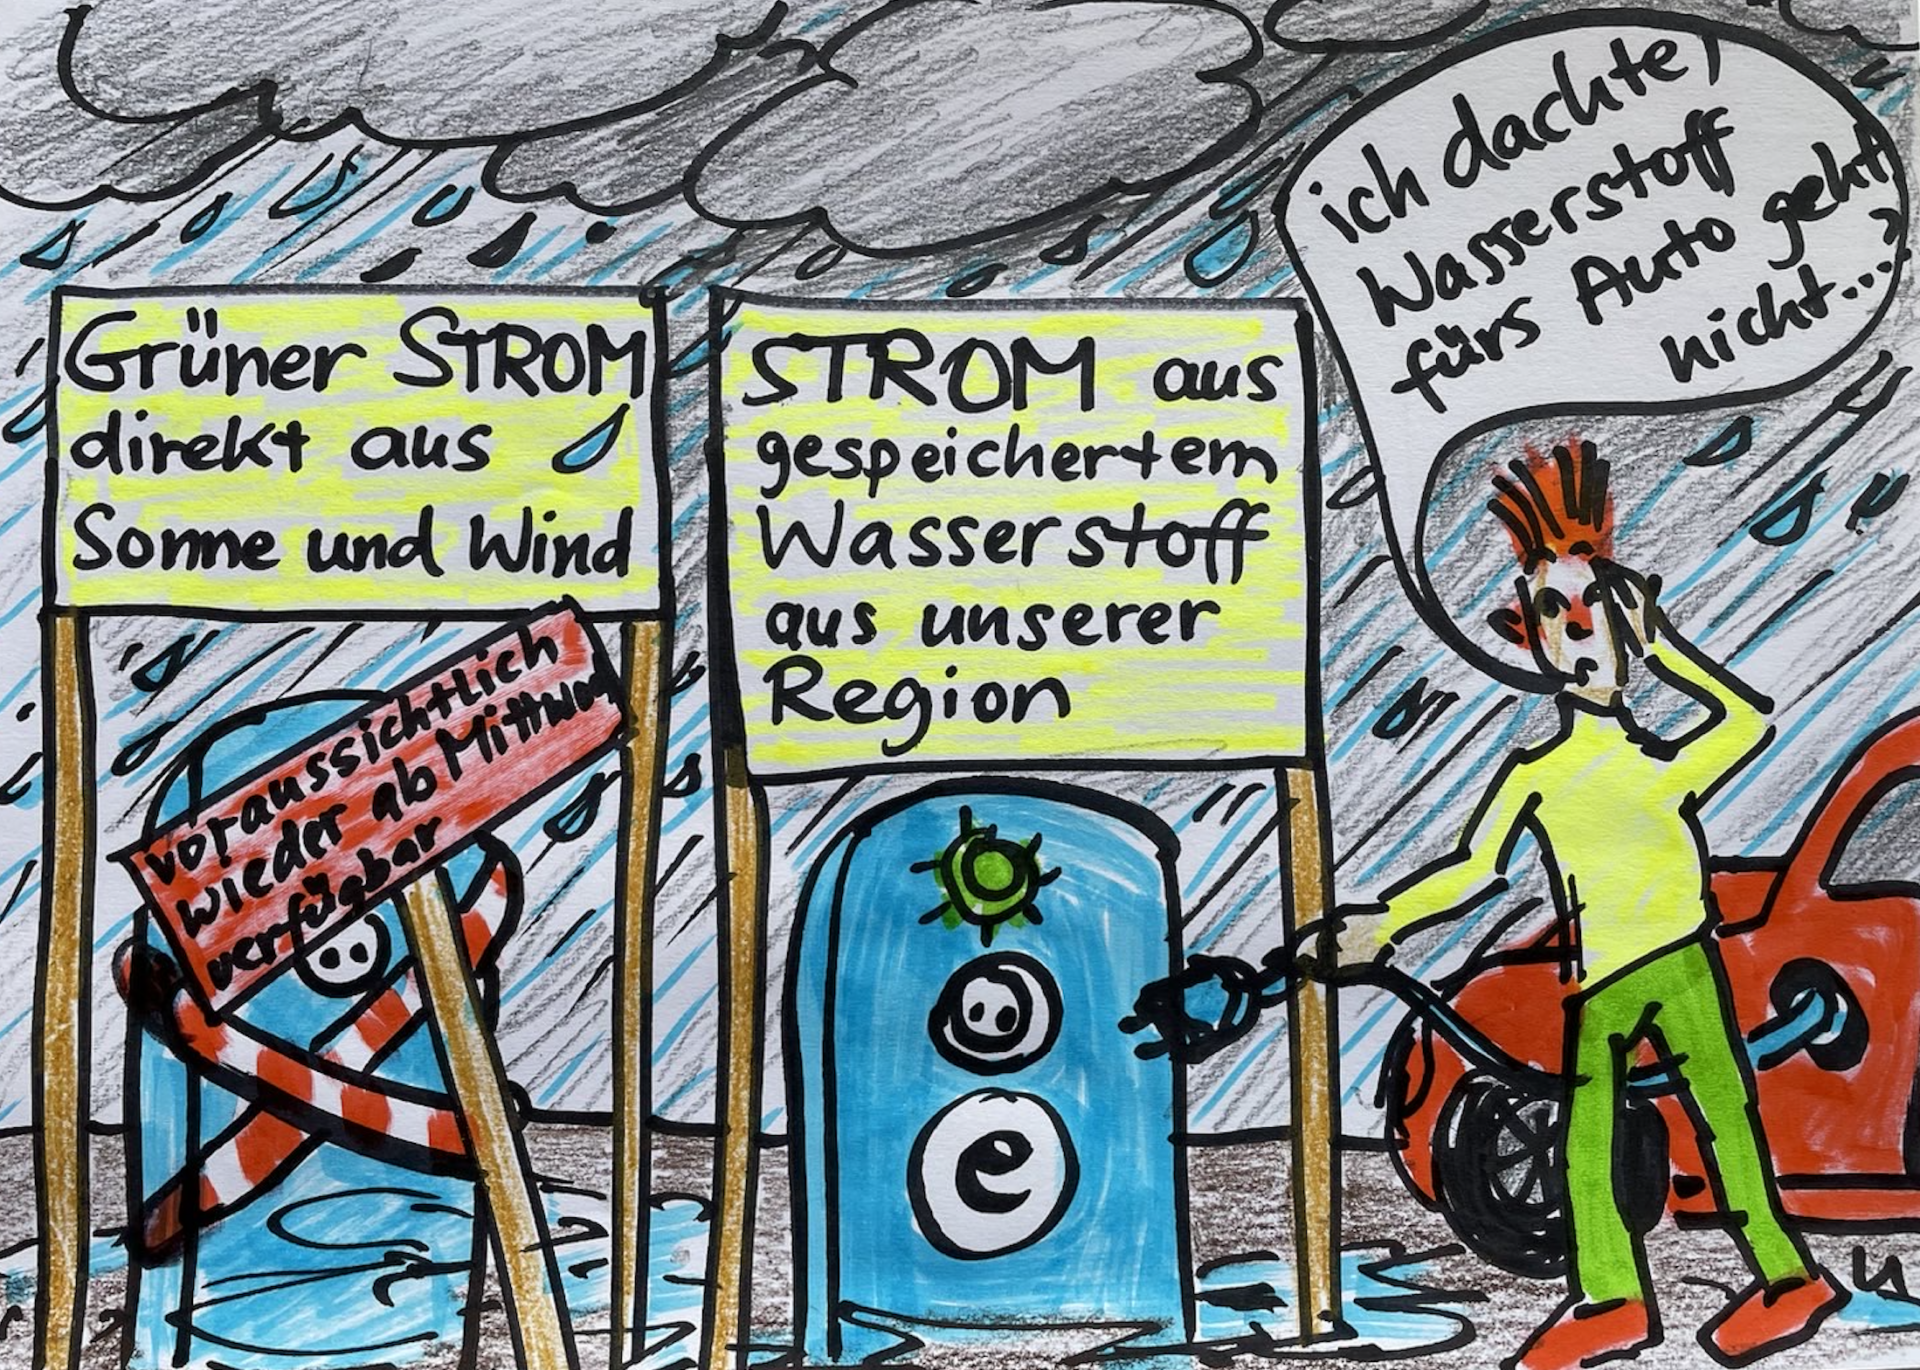 ich dachte,
Wasserstoff
fürs Auto geht
nicht...?
Grüner STROM
direkt aus
Sonne und Wind
STROM aus
gespeichertem
Wasserstoff
aus unserer
Region
voraussichtlich
wieder ab Mittwoch
verfügbar
e